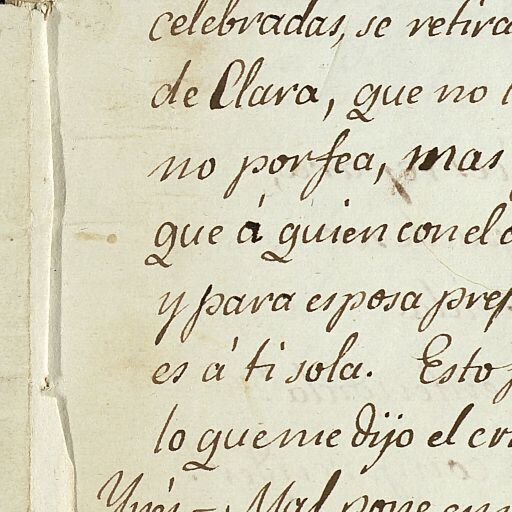 celebradas, se retira
de Clara, que no
no por fea, mas
que á quien con el
y para esposa pref
es á ti sola. Esto
lo que me dijo el cr
Ynés - Mal pone en